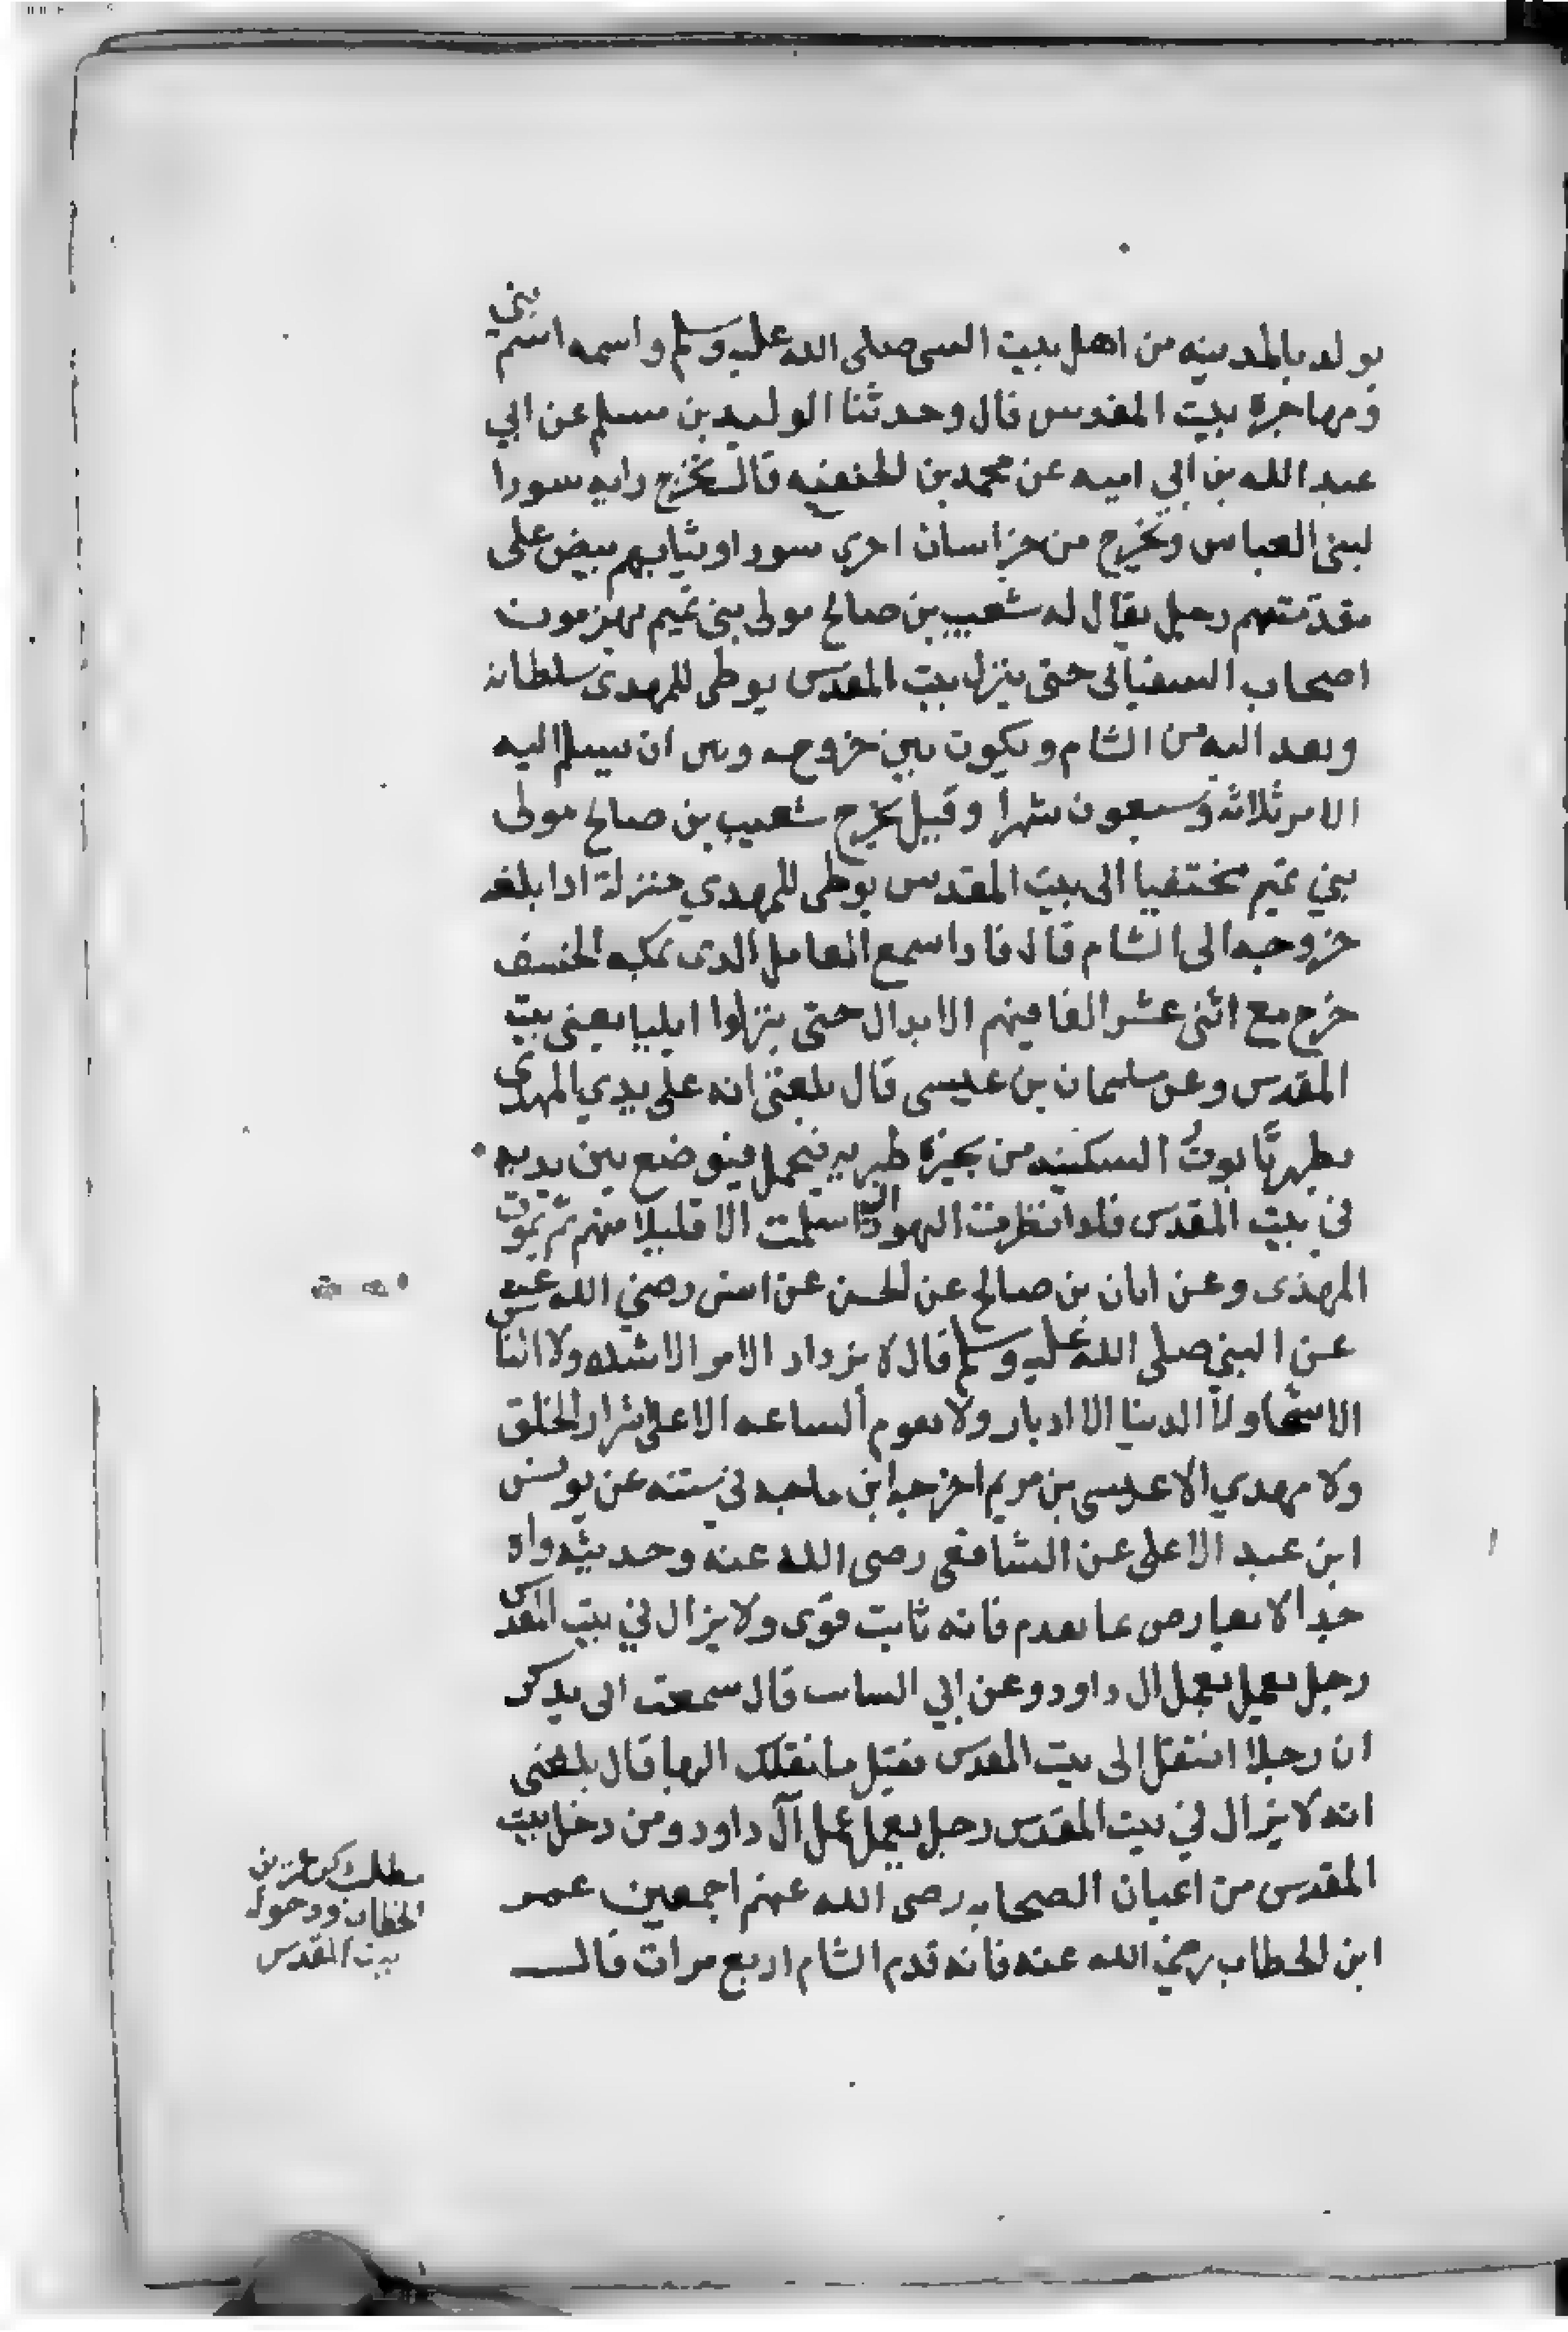 يولد بالمدينه من اهل بيت النبي صلى الله عليه وسلم واسمه اسم نبي
ومهاجره بيت المقدس قال وحدثنا الوليد بن مسلم عن ابي
عبد الله بن ابي اميه عن محمد بن الحنفيه قال تخرج رايه سودا
لبنى العباس وتخرج من خراسان اخرى سودا وثيابهم بيض على
مقدمتهم رجل يقال له شعيب بن صالح مولى بنى تميم يهزمون
اصحاب السفيانى حتى ينزل بيت المقدس يوطى للمهدى سلطانه
ويعد اليه من الشام ويكون بين خروجه وبين ان يسلم اليه
الامر ثلاثه وسبعون شهرا وقيل يخرج شعيب بن صالح مولى
بني تميم مختفيا الى بيت المقدس يوطى للمهدي منزلة اذا بلغه
خروجه الى الشام قال فاذا سمع العامل الذى بمكه الخسف
خرج مع اثنى عشر الفا فيهم الابدال حتى ينزلوا ايليا يعنى بيت
المقدس وعن سليمان بن عيسى قال بلغنى انه على يدي المهدي
يظهر تابوت السكينه من بحيرة طبريه فيحمل فيوضع بين يديه
في بيت المقدس فلو انظرت اليهود اليه اسلمت الا قليلا منهم ثم يموت
المهدى وعن ابان بن صالح عن الحسن عن انس رضي الله عنه
عن النبي صلى الله عليه وسلم قال لا يزداد الامر الا شده ولا الناس
الا شحا ولا الدنيا الا ادبار ولا تقوم الساعه الا على شرار الخلق
ولا مهدي الا عيسى بن مريم اخرجه ابن ماجه في سننه عن يونس
ابن عبد الاعلى عن الشافعى رضى الله عنه وحديثه واه
جدا لا يعارض ما تقدم فانه ثابت قوى ولا يزال في بيت المقدس
رجل يعمل بعمل ال داود وعن ابي السايب قال سمعت ابى يذكر
ان رجلا انتقل الى بيت المقدس فقيل ما نقلك اليها قال بلغنى
انه لا يزال في بيت المقدس رجل يعمل عمل آل داود ومن دخل بيت
المقدس من اعيان الصحابه رضى الله عنهم اجمعين عمر
ابن الخطاب رضي الله عنه فانه قدم الشام اربع مرات قال
مطلب ذكر عمر بن
الخطاب ودخوله
بيت المقدس